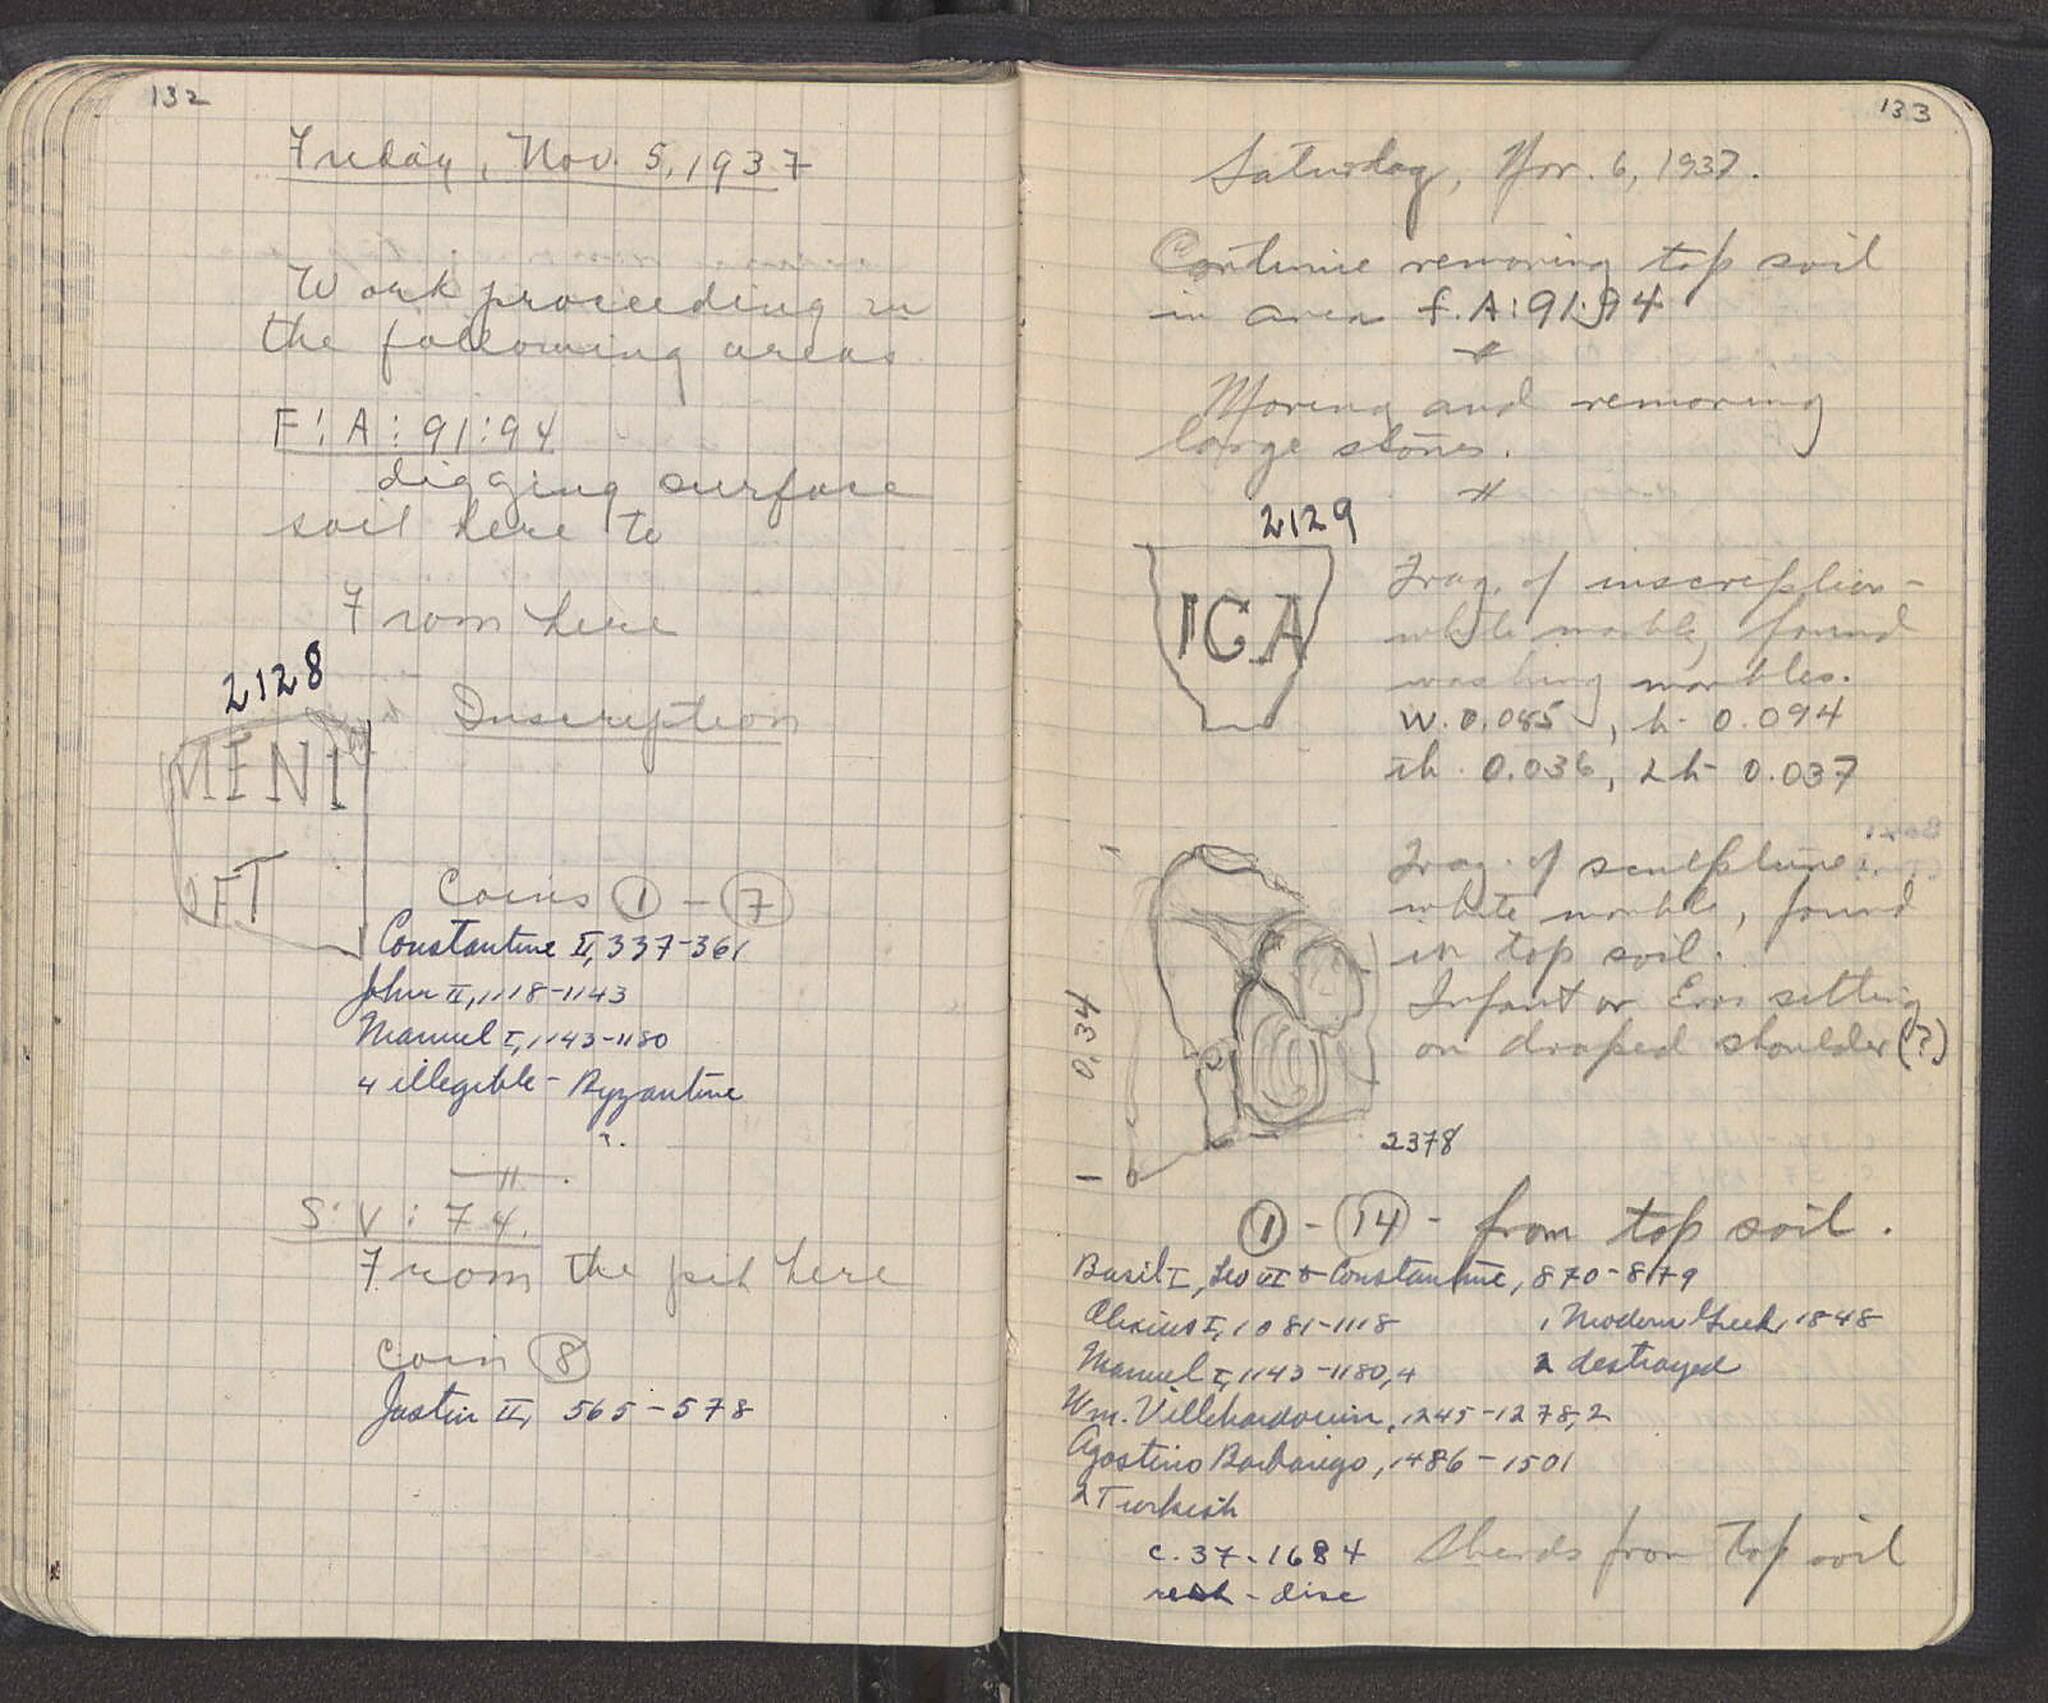 132
Friday, Nov. 5, 1937
Work proceeding in
the following areas
F: A: 91:94
digging surface
soil here to
From here
2128
Inscription
MENI
FT
Coins 1 - 7
Constantine II, 337-361
John II, 1118-1143
Manuel I, 1143-1180
4 illegible - Byzantine
?.
S: V: 74.
From the pit here
Coin 8
Justin II, 565-578
133
Saturday, Nov. 6, 1937.
Continue removing top soil
in area f. A:91:94
Moving and removing
large stones.
2129
IGA
Frag. of inscription-
white marble, found
washing marbles.
w. 0.085, h- 0.094
th. 0.036, Lh- 0.037
Frag. of sculpture
white marble, found
in top soil.
Infant or Eros sitting
on draped shoulder (?)
0,34
2378
1 - 14 - from top soil.
Basil I, Leo VI & Constantine, 870-879
Alexius I, 1081-1118
1 Modern Greek, 1848
Manuel I, 1143-1180, 4
2 destroyed
Wm. Villehardouin, 1245-1278, 2
Agostino Barbarigo, 1486-1501
2 Turkish
c. 37-1684
rest - disc
Sherds from top soil